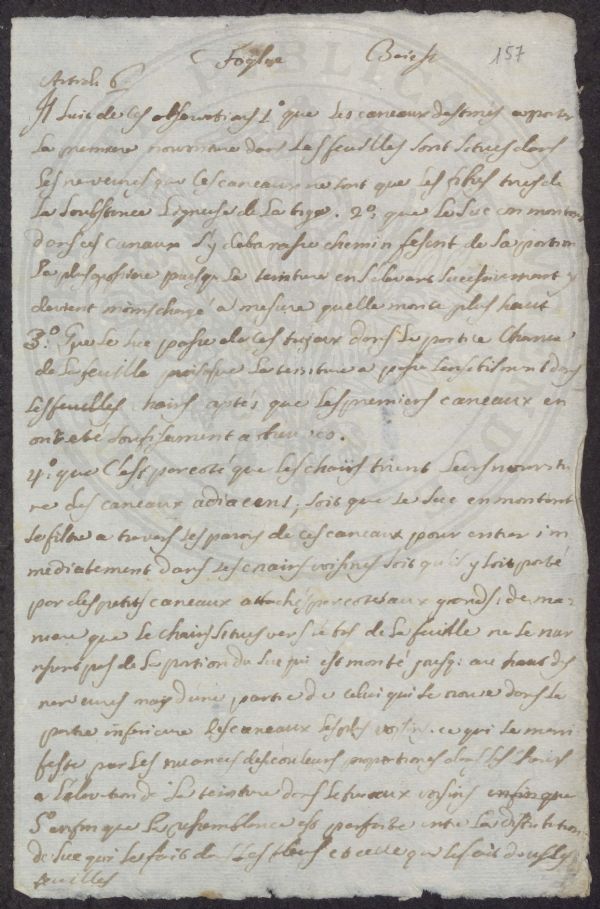 Foglie Baiest 157
Article 6
Il suit de ces observations 1.° que les caneaux destinés a porter
la premiere nourriture dans les feuilles sont situés dans
les nerveures que ces caneaux ne sont que les fibres tires de
la soubstance ligneuse de la tige. 2.° que le suc en montant
dans ces caneaux s'y debarasse chemin fesant de sa portion
la plus grossiere puisque la teinture en s'elevant successivement y
devient moins chargé a mesure quelle monte plus haut
3.° Que le suc passe de ces tuyaux dans la portion charnue
de la feuille puisque la teinture a passé sensiblement dans
les feuilles chairs aprés que les premiers caneaux en
ont eté soufisament
4.° que c'est par coté que les chairs tirent leurs nourritu
re des caneaux adiacens, soit que le suc en montant
se filtre a travers les parois de ces caneaux pour entrer im
mediatement dans les chairs voisines soit qu'il y soit porté
par des petits caneaux attachés par coté aux grands; de ma
niere que le chairs situés vers le bas de la feuille ne se nour
risent pas de la portion du suc qui est monté jusq: au haut des
nerveures mais d'une partie de celui qui se trouve dans la
partie inferieure des caneaux les plus voisins. ce qui se mani
feste par les nuances des couleurs proportionés dans les chairs
a l'elevation de la teinture dans les tuyaux voisins enfin que
5.° enfin que la resemblance est parfaite entre la distribution
de suc qui se fait dans les fleurs et celle que se fait dans les
feuilles